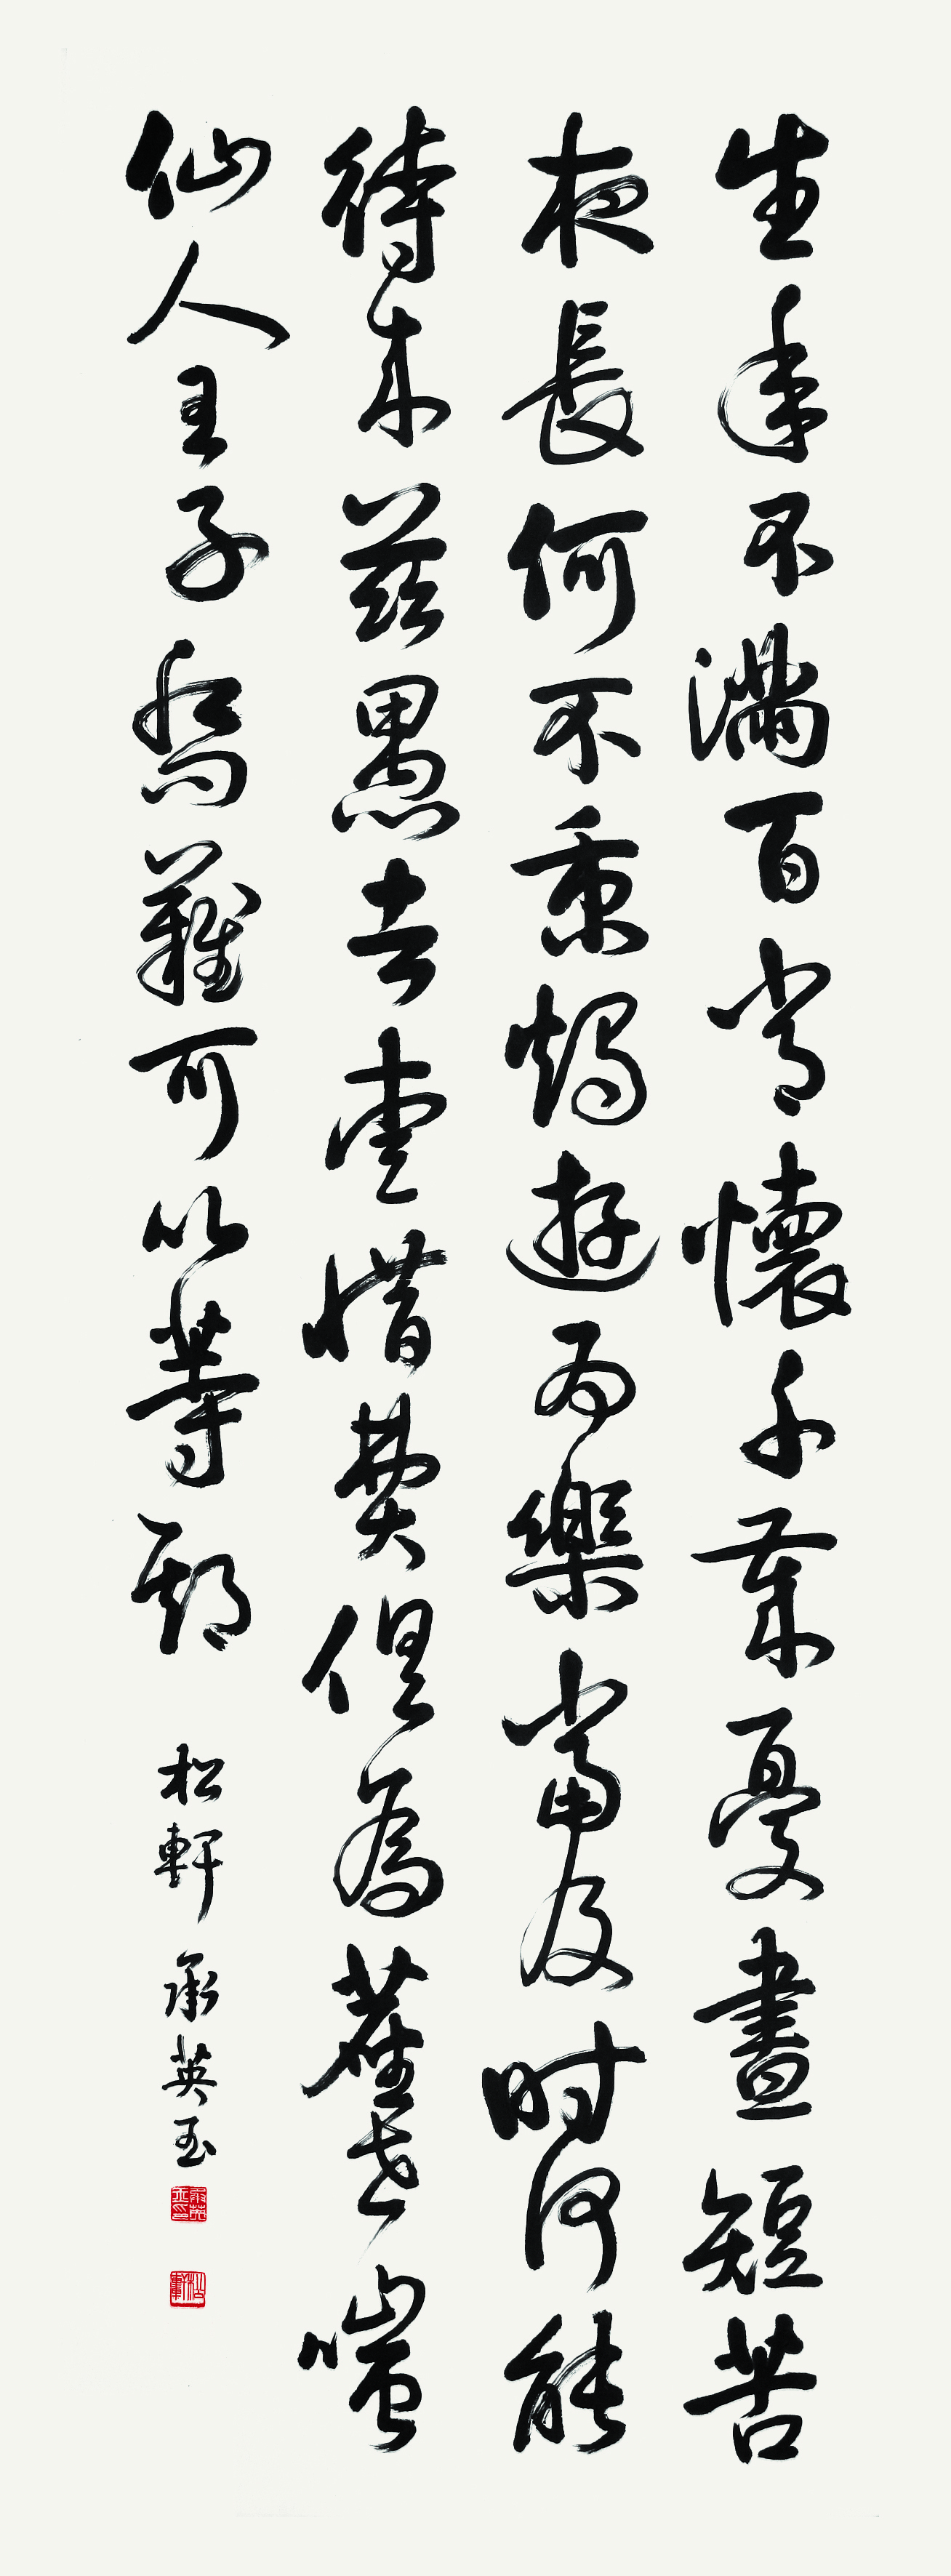 生年不滿百常懷千歲憂晝短苦
夜長何不秉燭遊為樂當及时何能
待來茲愚者愛惜費俱為塵世嗤
仙人王子喬難可以等期
松軒 承英玉
松軒